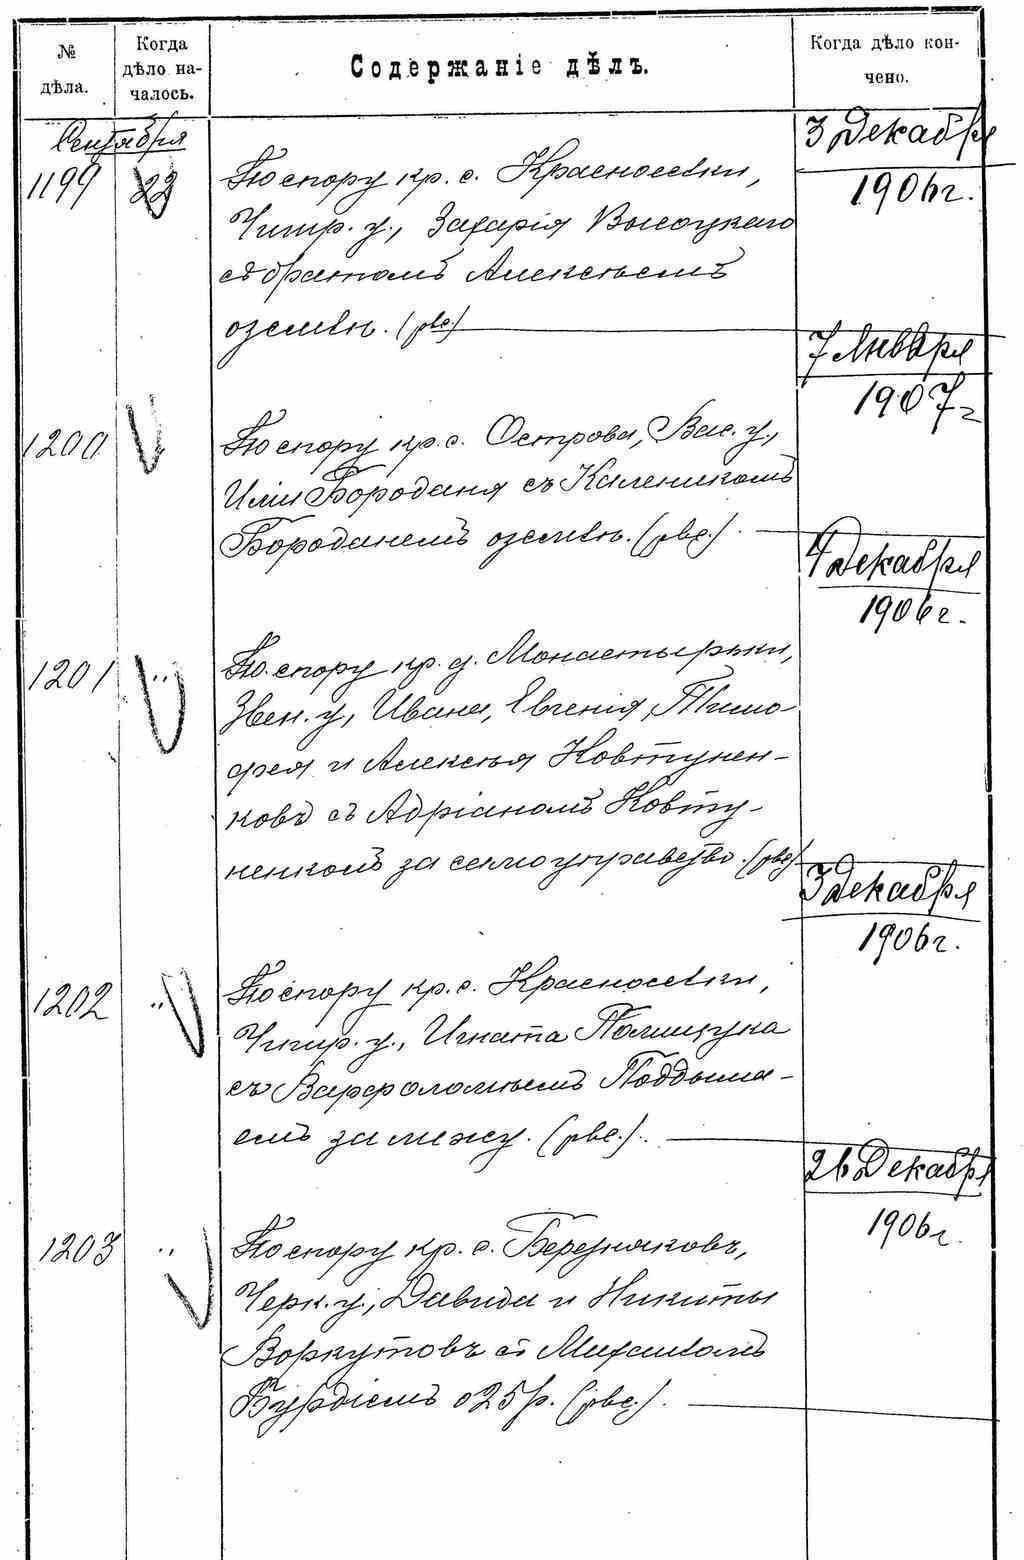 № дѣла.
Когда
дѣло на-
чалось.
Содержаніе дѣлъ.
Когда дѣло кон-
чено.
Сентября
1199
22
По спору кр. с. Красноселки,
Чигир. у., Захарія Высоцкаго
съ братомъ Алексѣемъ
о землѣ.
3 Декабря
1906 г.
1200
По спору кр. с. Острова, Вас. у.,
Ильи Бороданя съ Калеником
Бороданемъ о землѣ.
7 Января
1907 г
1201
"
По спору кр. д. Монастырьки,
Звен. у., Ивана, Евгенія, Тимо-
фея и Алексѣя Ковтунен-
ковъ съ Адріаномъ Ковту-
ненкомъ за самоуправство.
4 Декабря
1906 г.
1202
"
По спору кр. с. Красноселки,
Чигир. у., Игната Полищука
съ Варфоломѣемъ Поддыма-
емъ за межу.
3 Декабря
1906 г.
1203
"
По спору кр. с. Березняковъ,
Черк. у., Давида и Никиты
Воркутовъ съ Михаиломъ
Бурдіемъ о 25 р.
26 Декабря
1906 г.